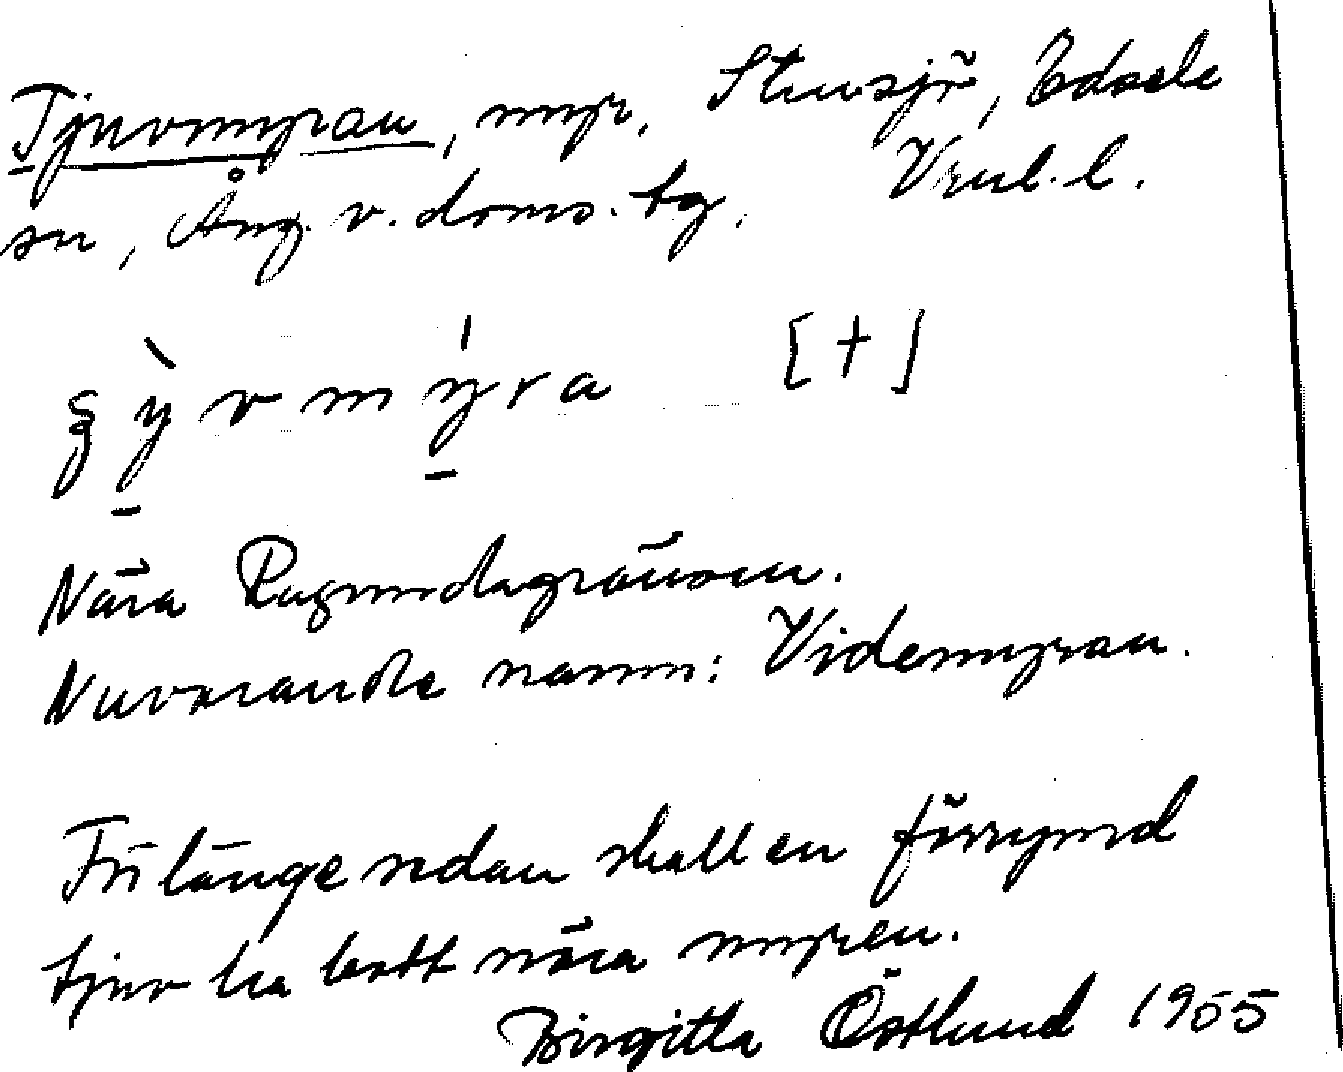 Tjuvmyran, myr, Stensjö, Edsele
sn, Ång. v. doms. tg, Vrul. l.
ỳvmýra [+]
Nära Ragundagränsen.
Nuvarande namn: Videmyran.
För länge sedan skall en förrymd
tjuv ha bott nära myren.
Birgitta Östlund 1955